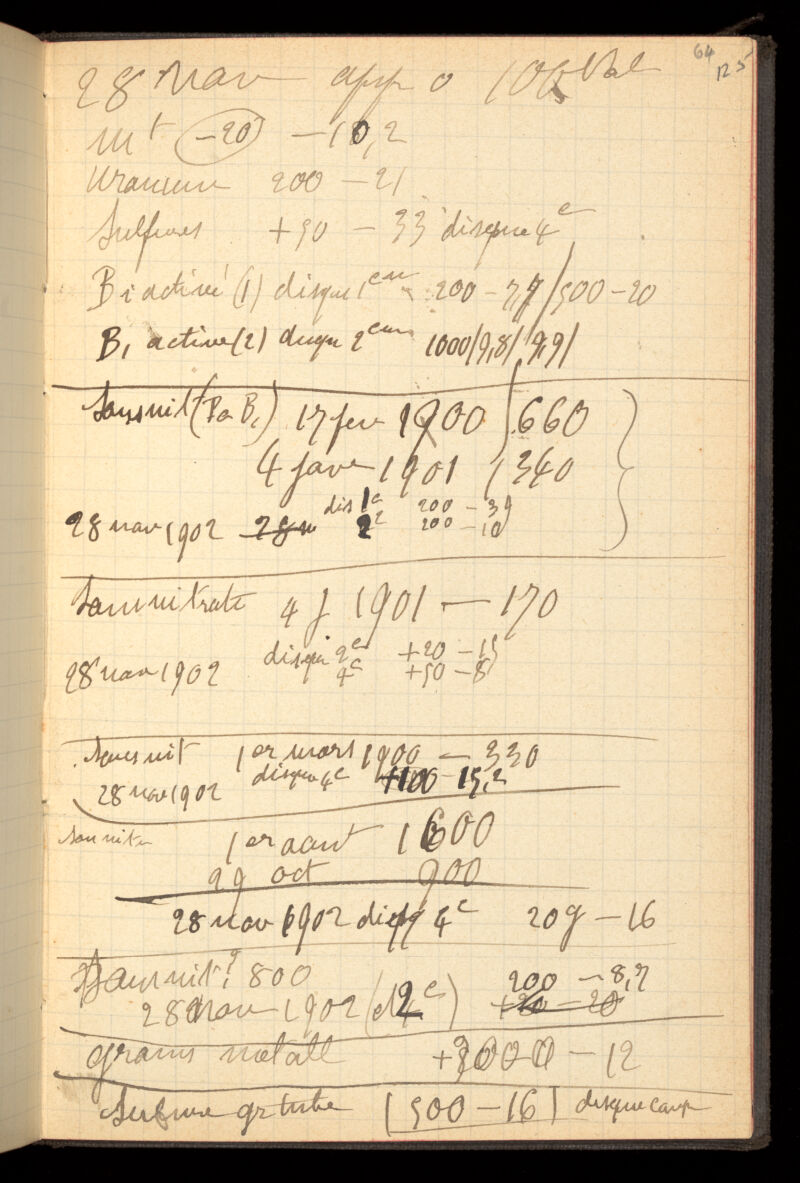 64
125
28 nov app 0 100 Vol
mt -20 -10,2
Uranium 200 - 21
Sulfures +50 - 33 disque 4c
Bi activé (1) disque 1cm 200 - 7,7 / 500 - 20
Bi active (2) disque 2cm 1000 / 9,8 / 9,9 /
Sousnit (Po Bi) 17 fev 1900 660
4 janv 1901 340
dis 1c 200 - 39
28 nov 1902 28 n 2c 200 - 10
Sousnitrate 4 j 1901 - 170
disque 2c +20 - 15
28 nov 1902 4c +50 - 8
Sousnit 1er mars 1900 - 330
28 nov 1902 disque 4c +100 15,2
Sousnitr 1er aout 1600
29 oct 900
28 nov 1902 disq 4c 20g - 16
Sousnit? 800 200 - 8,7
28 nov 1902 (d 2c) +20 - 20
grains metall - 12
Sulfure gr tube 500 - 16 disque